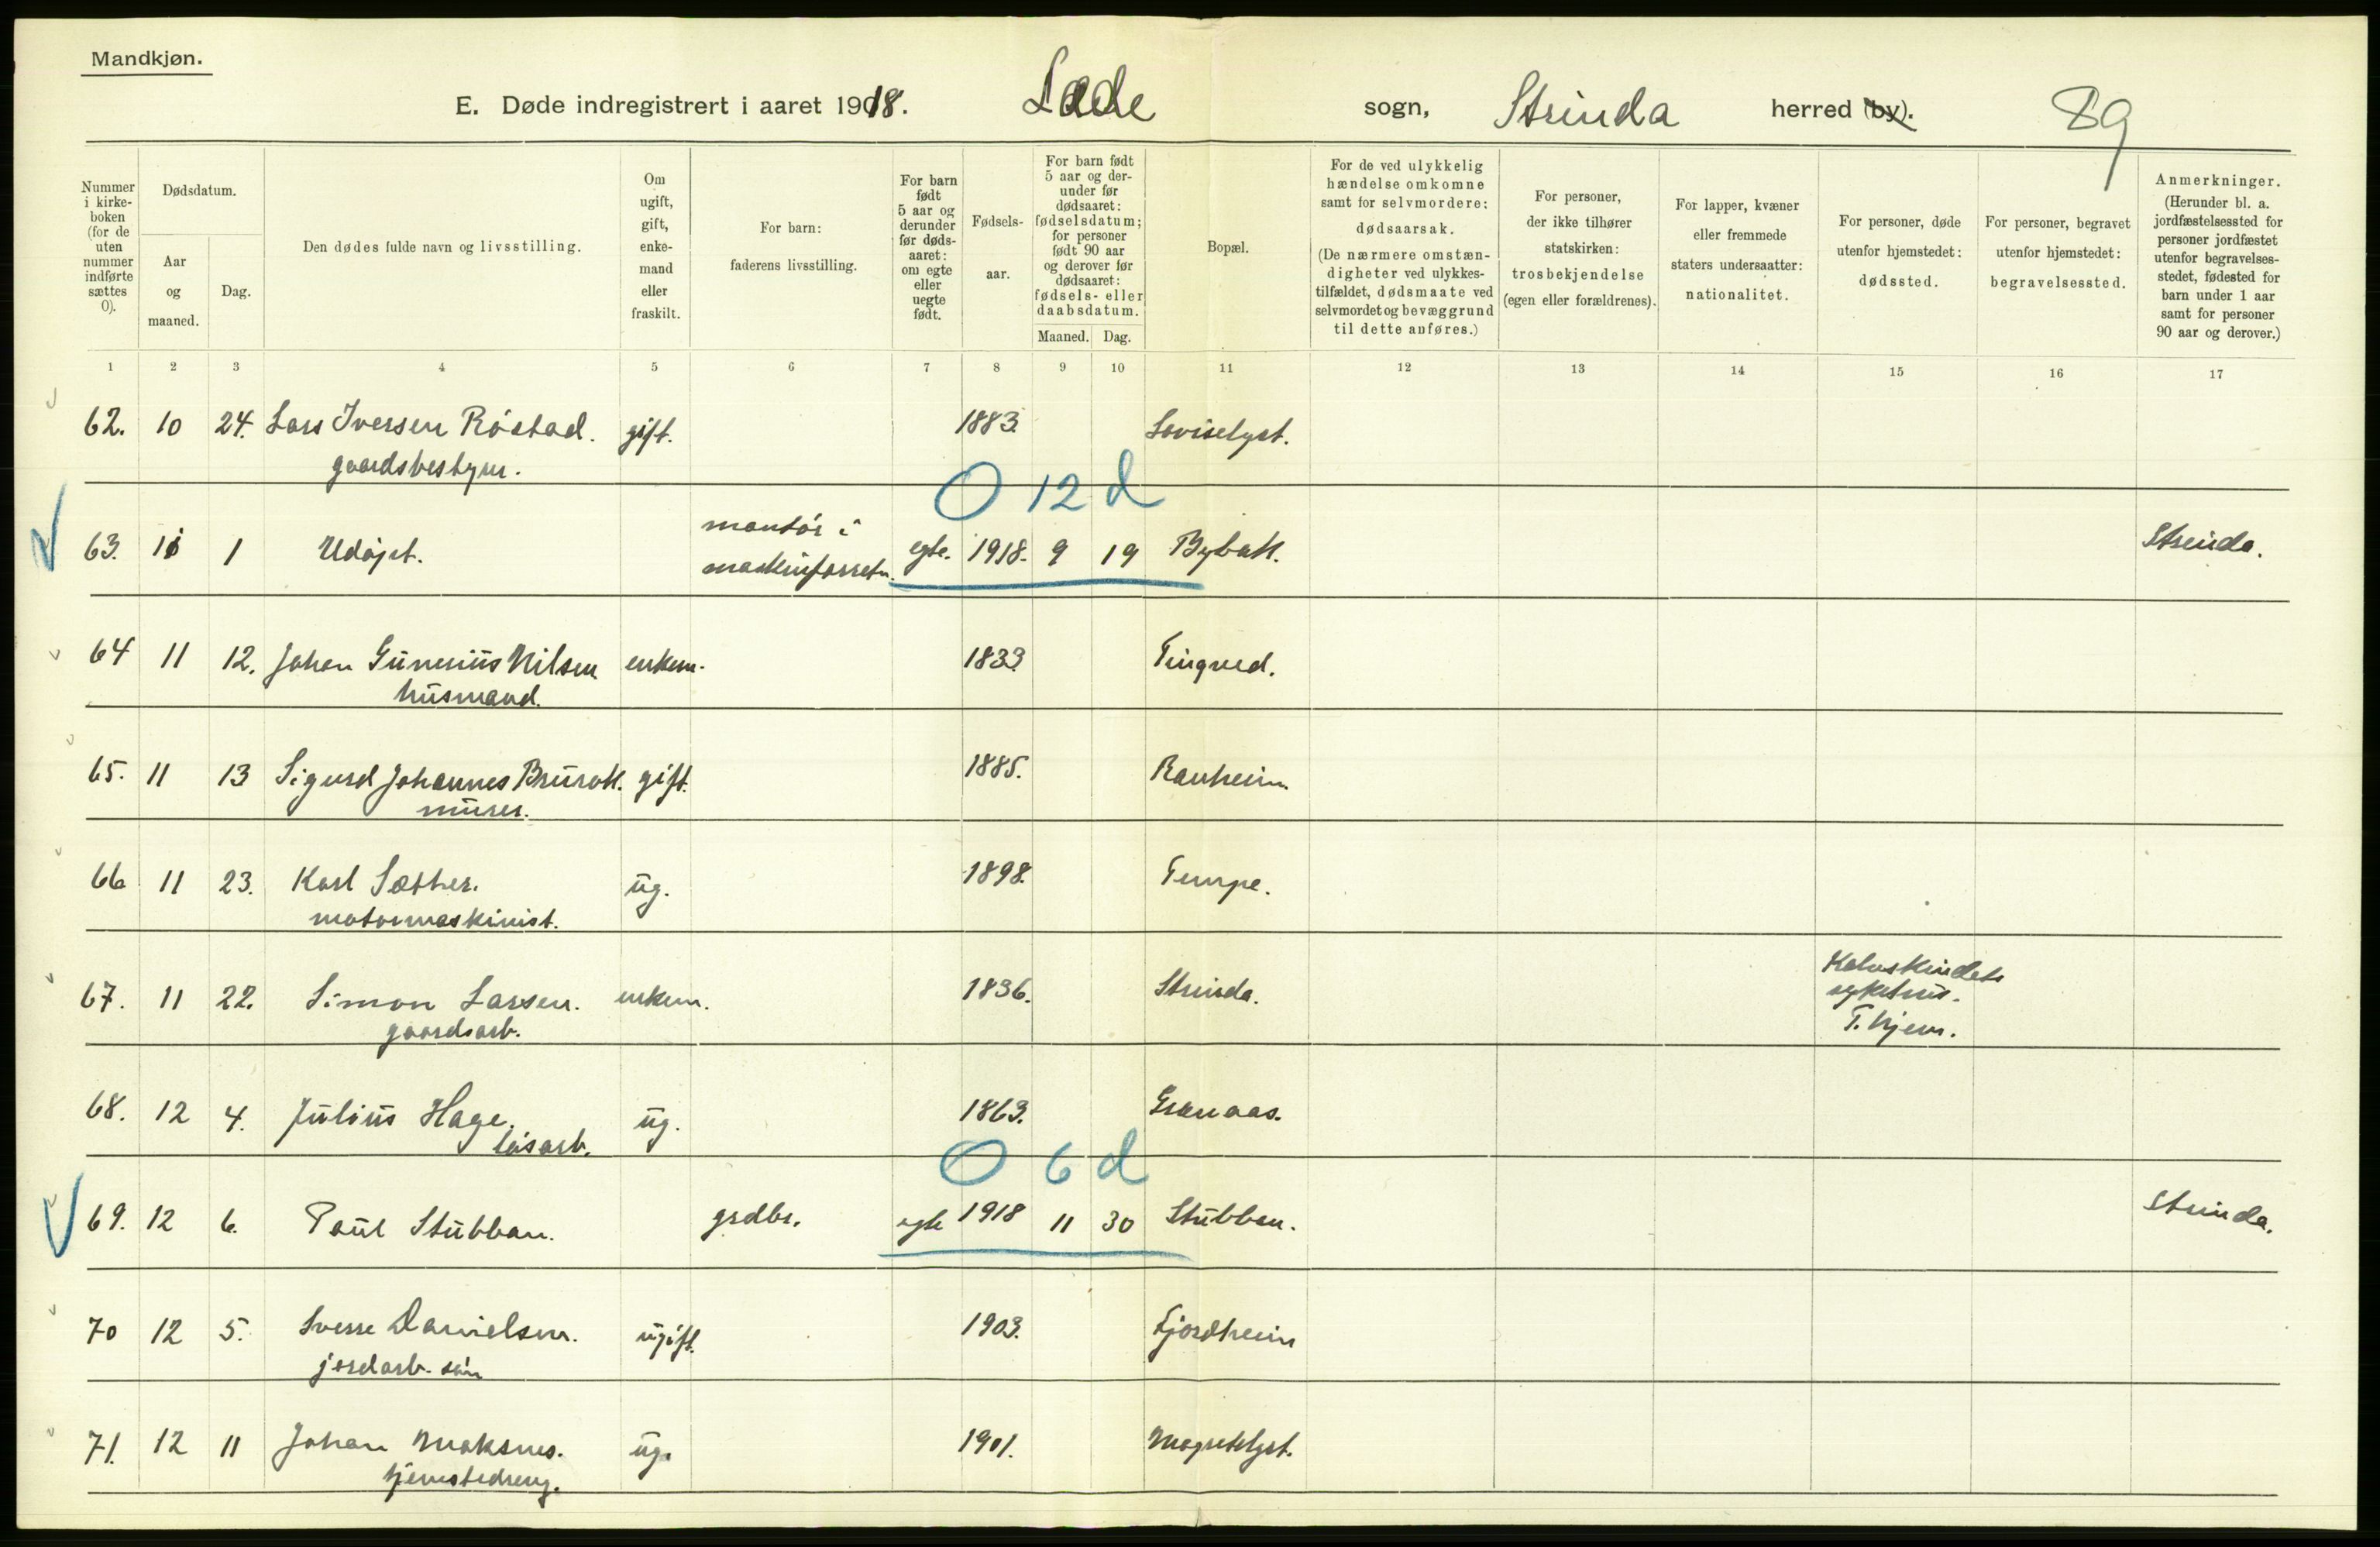 Mandkjøn.
E. Døde indregistrert i aaret 1918. Lade sogn, Strinda herred (by). 89
Nummer i kirke-boken (for de uten nummer indførte sættes 0).
Dødsdatum.
Aar og maaned.
Dag.
Den dødes fulde navn og livsstilling.
Om ugift, gift, enke-mand eller fraskilt.
For barn: faderens livsstilling.
For barn født 5 aar og derunder før døds-aaret: om egte eller uegte født.
Fødsels-aar.
For barn født 5 aar og der-under før dødsaaret: fødselsdatum; for personer født 90 aar og derover før dødsaaret: fødsels- eller daabsdatum.
Maaned. Dag.
Bopæl.
For de ved ulykkelig hændelse omkomne samt for selvmordere: dødsaarsak. (De nærmere omstæn-digheter ved ulykkes-tilfældet, dødsmaate ved selvmordet og bevæggrund til dette anføres.)
For personer, der ikke tilhører statskirken: trosbekjendelse (egen eller forældrenes).
For lapper, kvæner eller fremmede staters undersaatter: nationalitet.
For personer, døde utenfor hjemstedet: dødssted.
For personer, begravet utenfor hjemstedet: begravelsessted.
Anmerkninger. (Herunder bl. a. jordfæstelsessted for personer jordfæstet utenfor begravelses-stedet, fødested for barn under 1 aar samt for personer 90 aar og derover.)
1 2 3 4 5 6 7 8 9 10 11 12 13 14 15 16 17
62. 10 24. Lars Iversen Röstad. gift. 1883. Loviselyst.
gaardsbestyrer.
0 12 d
63. 11 1 Udöpt. montör i maskinforretn. egte. 1918. 9 19 Strinda.
64 11 12. Johan Gunerius Nilsen enkem. 1833.
husmand.
65. 11 13 Sigurd Johannes gift. 1885. Ranheim.
murer.
66 11 23. Karl Sæther. ug. 1898. Tempe.
motormaskinist.
67. 11 22. Simon Larsen. enkem. 1836. Strinda. Kalvskindets sykehus. T.hjem.
gaardsarb.
68. 12 4. Julius Hage. ug. 1863. Granaas.
løsarb.
0 6 d
69. 12 6. Paul Stubban. grdbr. egte 1918 11 30 Stubban. Strinda.
70 12 5. Sverre Danielsen. ugift. 1903. Fjordheim
jordarb. sön
71. 12 11 Johan Moksnes. ug. 1901. Magretelyst.
tjenestedreng.